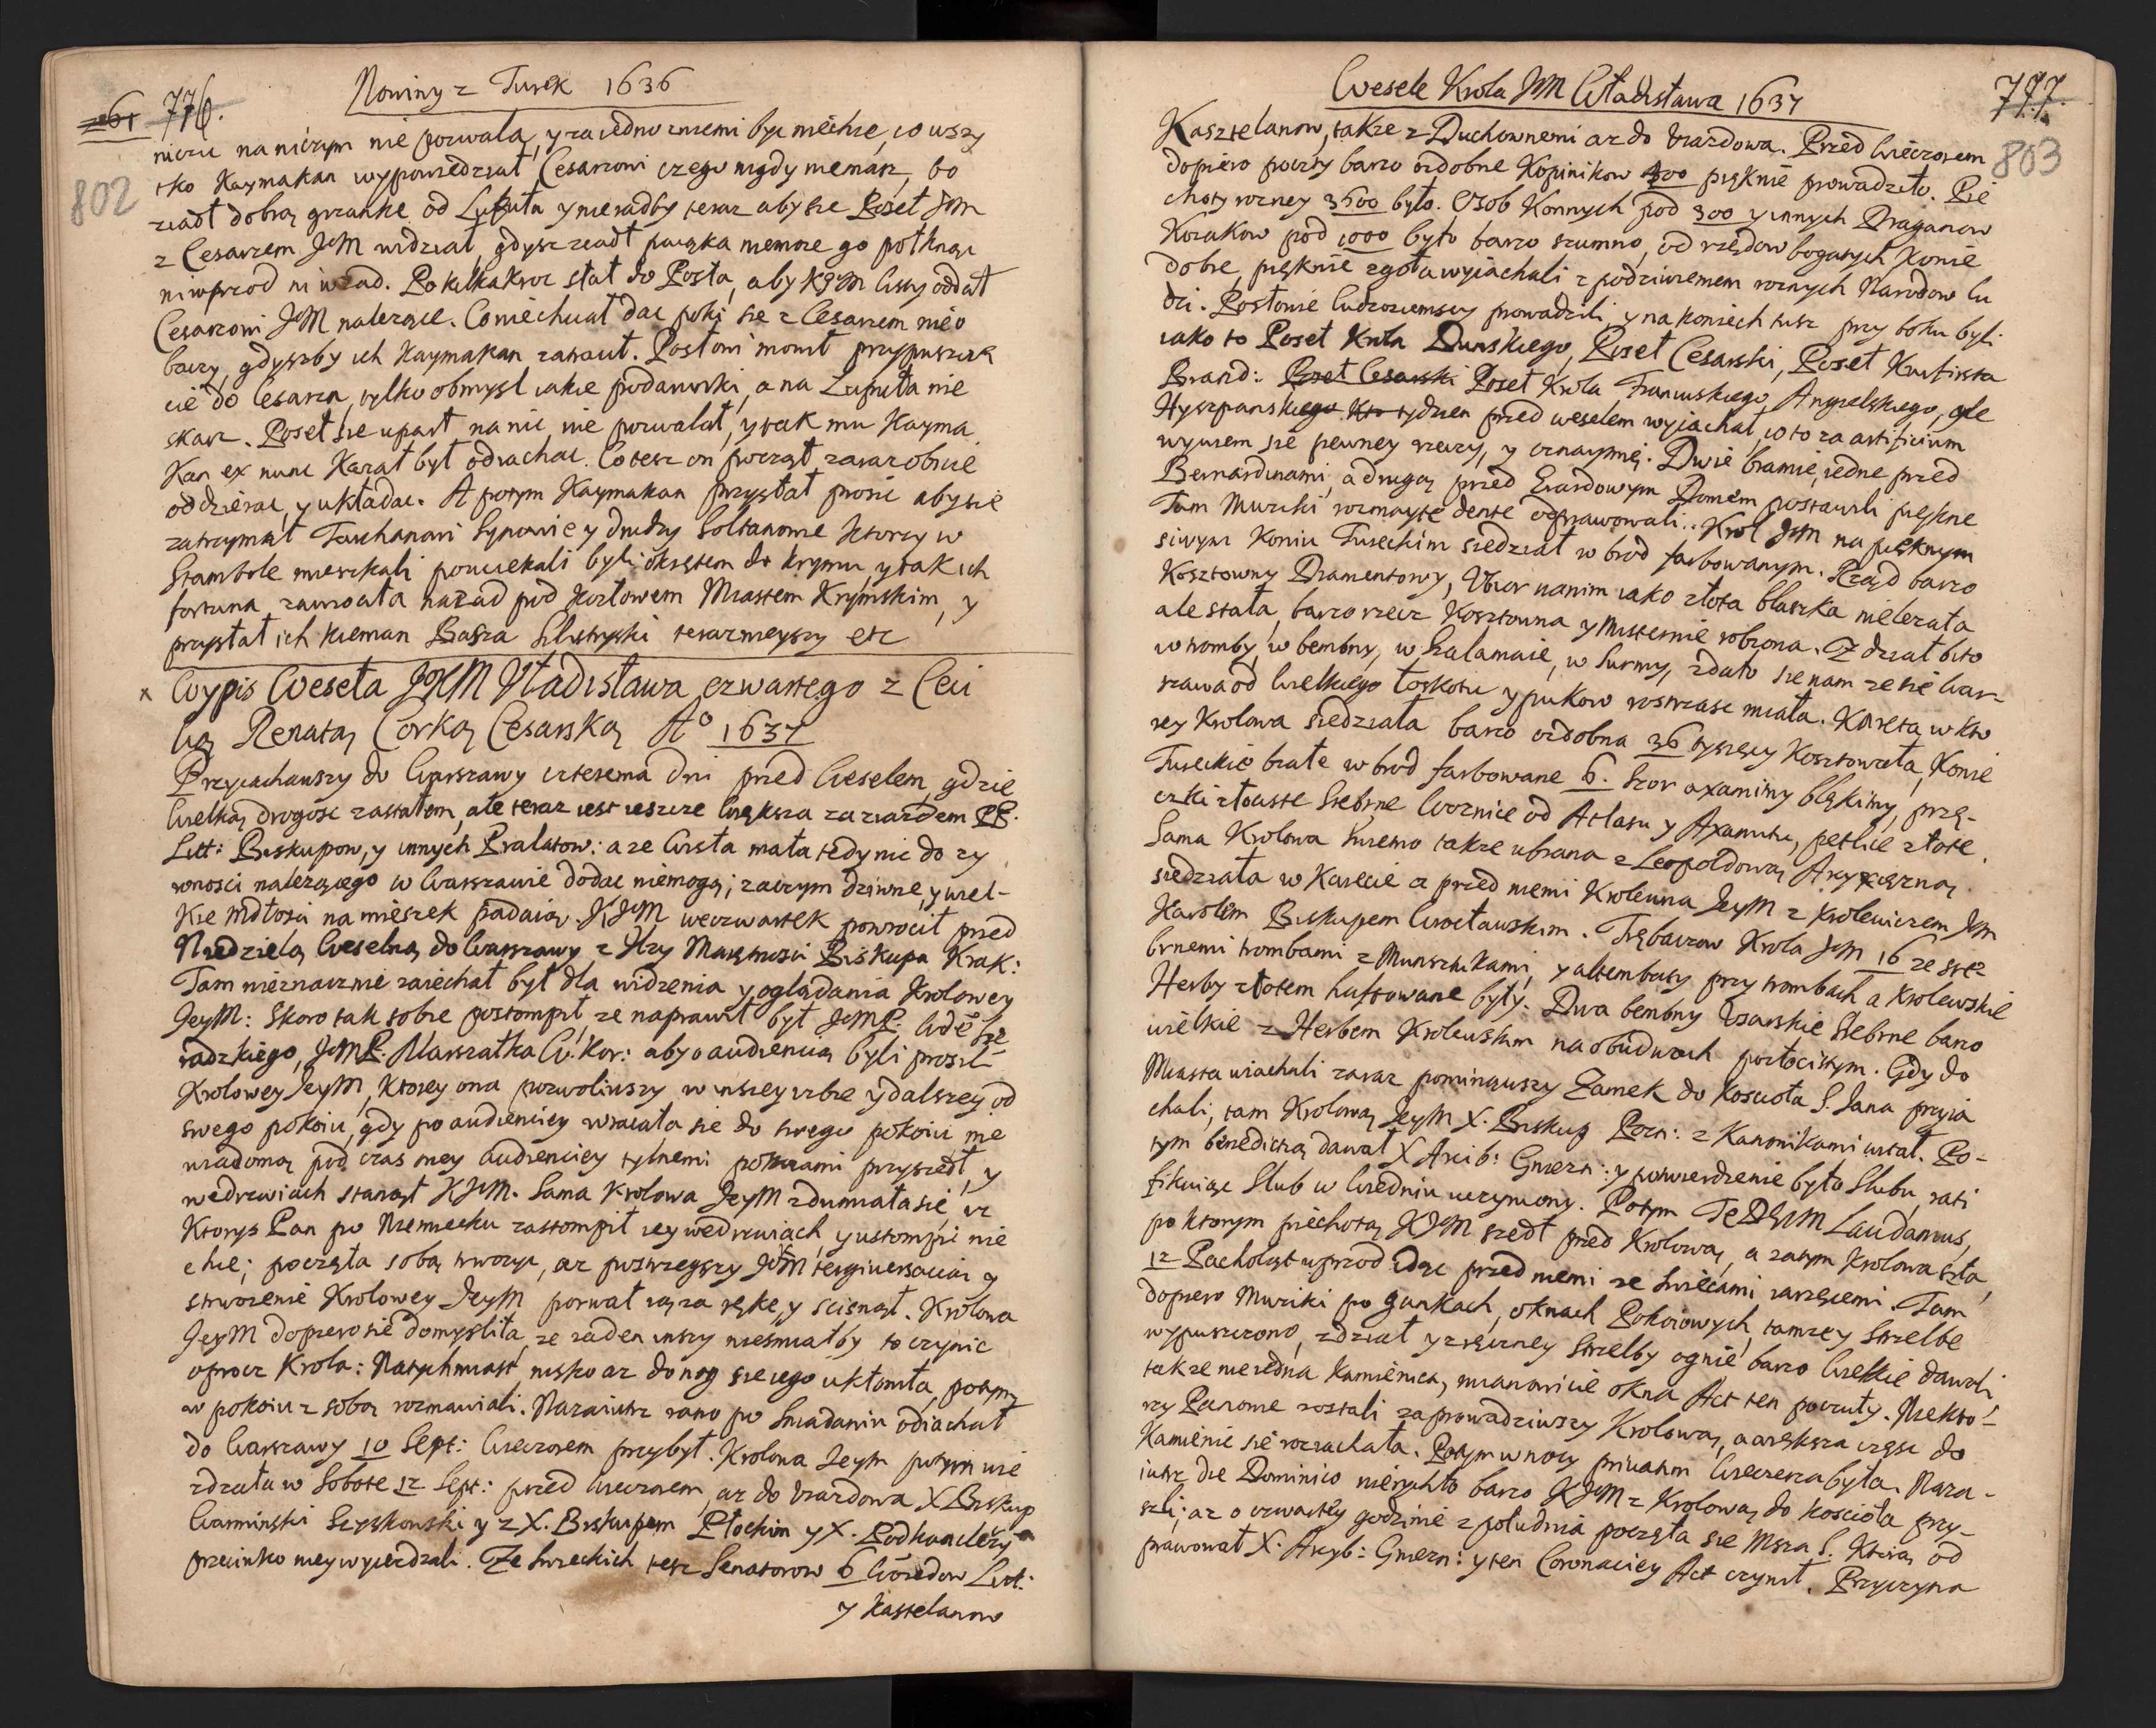 Nowiny z Turek 1636
261 776.
802
niczu na niczym nie pozwala, y za iedno zniemi być niechce, co uszy
tko Kaymakan wypowiedział Cesarzowi czego nigdy niemasz, bo
ziadł dobrą grzankę od Lupuła y nieradby teraz aby sie Poseł JKM
z Cesarzem JeM widział, gdysz ziadł pacząka niemoze go połknąc
ni wprzod ni wzad. Po kilkakroc słał do Posła, aby KJM Listy oddał
Cesarzowi JeM nalezące. Co niechciał dac poki sie z Cesarzem nie o
baczy, gdyszby ich Kaymakan zatracił. Posłowi mowił przypuszczą
cie do Cesarza, tylko obmysl iakie podarunki, a na Lupuła nie
skarz. Poseł sie uparł na nic nie pozwalał, y tak mu Kayma
Kan ex nunc Kazał był odiachac. Co tesz on począł zaraz obicie
oddzierac, y układac. A potym Kaymakan przysłał prosic aby sie
zatrzymał Tauchanowi Synowie y drudzy Sołtanowie Ktorzy w
Stambole mieszkali pouciekali byli okrętem do Krymu, y tak ich
fortuna zawrociła nazad pod Kozłowem Miastem Krymskim, y
przysłał ich Kieman Basza Silistryski terazmeyszy etc
x Wypis Wesela JKM Władisława czwartego z Ceci
lią Renatą Corką Cesarską Aº 1637
Przyiachawszy do Warszawy cztesema dni przed Weselem, gdzie
Wielką drogosc zastałem, ale teraz iest ieszcze większa za ziazdem PP.
Litt: Biskupow, y innych Prałatow: a ze Wisła mała tedy nic do zy
wnosci nalezącego w Warszawie dodac niemogą; zaczym dziwne, y wiel-
Kie mdłosci na mieszek padaią. KJeM we czwartek powrocił przed
Niedzielą Weselną do Warszawy z Jłzy Maiętnosci Biskupa Krak:
Tam nieznacznie zaiechał był dla widzenia y oglądania Krolowey
JeyM: Skoro tak sobie postompił, ze naprawił był JeMP. Wdę Sie
radzkiego, JeMP. Marszałka W. Kor: aby o audiencią byli prosili
Krolowey JeyM, Ktorey ona pozwoliwszy, w inszey izbie y dalszey od
swego pokoiu, gdy po audienciey wracała sie do swego pokoiu nie
wiadomą pod czas iney audienciey tylnemi pokoiami przyszedł, y
we drzwiach stanął KJeM. Sama Krolowa JeyM zdumiała się, iz
Ktorys Pan po Niemiecku zastompił iey we drzwiach, y ustompic nie
chce; poczęła sobą trwozyc, az postrzegszy JKM tergiversacią y
strwozenie Krolowey JeyM porwał ią za rękę, y scisnął. Krolowa
JeyM dopiero sie domysliła, ze zaden inszy niesmiałby to czynic
oprocz Krola: Natychmiast nisko az do nog sie iego ukłoniła, potym
w pokoiu z sobą rozmawiali. Nazaiutrz rano po Sniadaniu odiachał
do Warszawy 10 Sept: Wieczorem przybył. Krolowa Jeym potym wie
zdzała w Sobote 12 Sept: przed wieczorem, az do Uiazdowa X Biskup
Warminski Szyszkowski y z X. Biskupem Płockim y X. Podkanclerzym
przeciwko niey wyiezdzali. Ze Swieckich tesz Senatorow 6 Woiedow Lit:
y Kasztelanow
Wesele Krola JM Władisława 1637
777.
803
Kasztelanow, takze z Duchownemi az do Uiazdowa. Przed Wieczorem
dopiero poczty barzo ozdobne Kopinikow 400 pięknie prowadziło. Pie
choty rozney 3600 było. Osob Konnych pod 300 y innych Draganow
Kozakow pod 1000 było barzo szumno, od rzędow bogatych, Konie
dobre, pięknie zgoła wyiachali z podziwieniem roznych Narodow lu
dzi. Posłowie Cudzoziemscy prowadzili, y na koniech tusz przy boku byli
iako to Poseł Krola Dunskiego, Poseł Cesarski, Poseł Kurfirsta
Brand: Poseł Cesarski Poseł Krola Francuskiego, Angielskiego, ale
Hyszpanskiego Kto tydzien przed weselem wyjachał, co to za artificium
wyiwem sie pewney rzeczy, y oznaymię. Dwie bramie, iedne przed
Bernardinami, a drugą przed Uiazdowym Domem postawili piękne
Tam Muziki rozmayte dense odprawowali. Krol JeM na pięknym
siwym Koniu Tureckim siedział w brod farbowanym. Rząd barzo
Kosztowny Diamentowy, Ubior na nim iako złota blaszka nielezała
ale stała, barzo rzecz Kosztowna y misternie robiona. Z dział bito
w tromby, w bembny, w Szalamaie, w Surmy, zdało sie nam ze sie War-
szawa od wielkiego łoskotu y pukow roztrzasc miała. Kareta w kto
rey Krolowa siedziała barzo ozdobna 36 tysięcy Kosztowała, Konie
Tureckie białe w brod farbowane 6. Szor axamitny błękitny, przą-
czki złociste Srebrne Woznice od Atlasu y Axamitu, petlice złote.
Sama Krolowa Suremo takze ubrana z Leopoldową Arcyxiężną
siedziała w Karecie a przed niemi Krolewna JeyM z Krolewiczem JeM
Karolem Biskupem Wrocławskim. Trębaczow Krola JeM 16 ze sre
brnemi trombami z Munsztukami, y altembasy przy trombach a Krolewskie
Herby złotem haftowane były. Dwa bembny Usarskie Srebrne barzo
wielkie z Herbem Krolewskim na obudwoch pozłocistym. Gdy do
Miasta wiachali zaraz pominąwszy Zamek do Koscioła S. Jana przyia
chali, tam Krolową JeyM X. Biskup Pozn: z Kanonikami witał. Po-
tym benedictią dawał X Arcib: Gniezn: y potwierdzenie było Slubu, rati
fikuiąc Slub w Wiedniu uczyniony. Potym Te DEUM Laudamus,
po ktorym piechotą KJeM szedł przed Krolową, a zatym Krolowa szła,
12 Pacholąt wprzod idąc przed niemi ze Swiecami zarzęcemi. Tam
dopiero Muziki po gankach, oknach Pokoiowych, tamzey Strzelbe
wypuszczono, zdział y zręczney Strzelby ognie barzo Wielkie dawali,
takze nieiedna Kamienica, mianowicie okna Act ten poczuły. Niekto-
rzy Panowie zostali zaprowadziwszy Krolową, a większa częsc do
Kamienic sie rozjachała. Potym w nocy privatim Wieczerza była. Naza-
iutrz die Dominico nierychło barzo KJeM z Krolową do koscioła przy-
szli; az o czwartey godzinie z południa poczęła sie Msza S. Ktorą od
prawował X. Arcyb: Gniezn: y ten Coronaciey Act czynił. Przyczyna